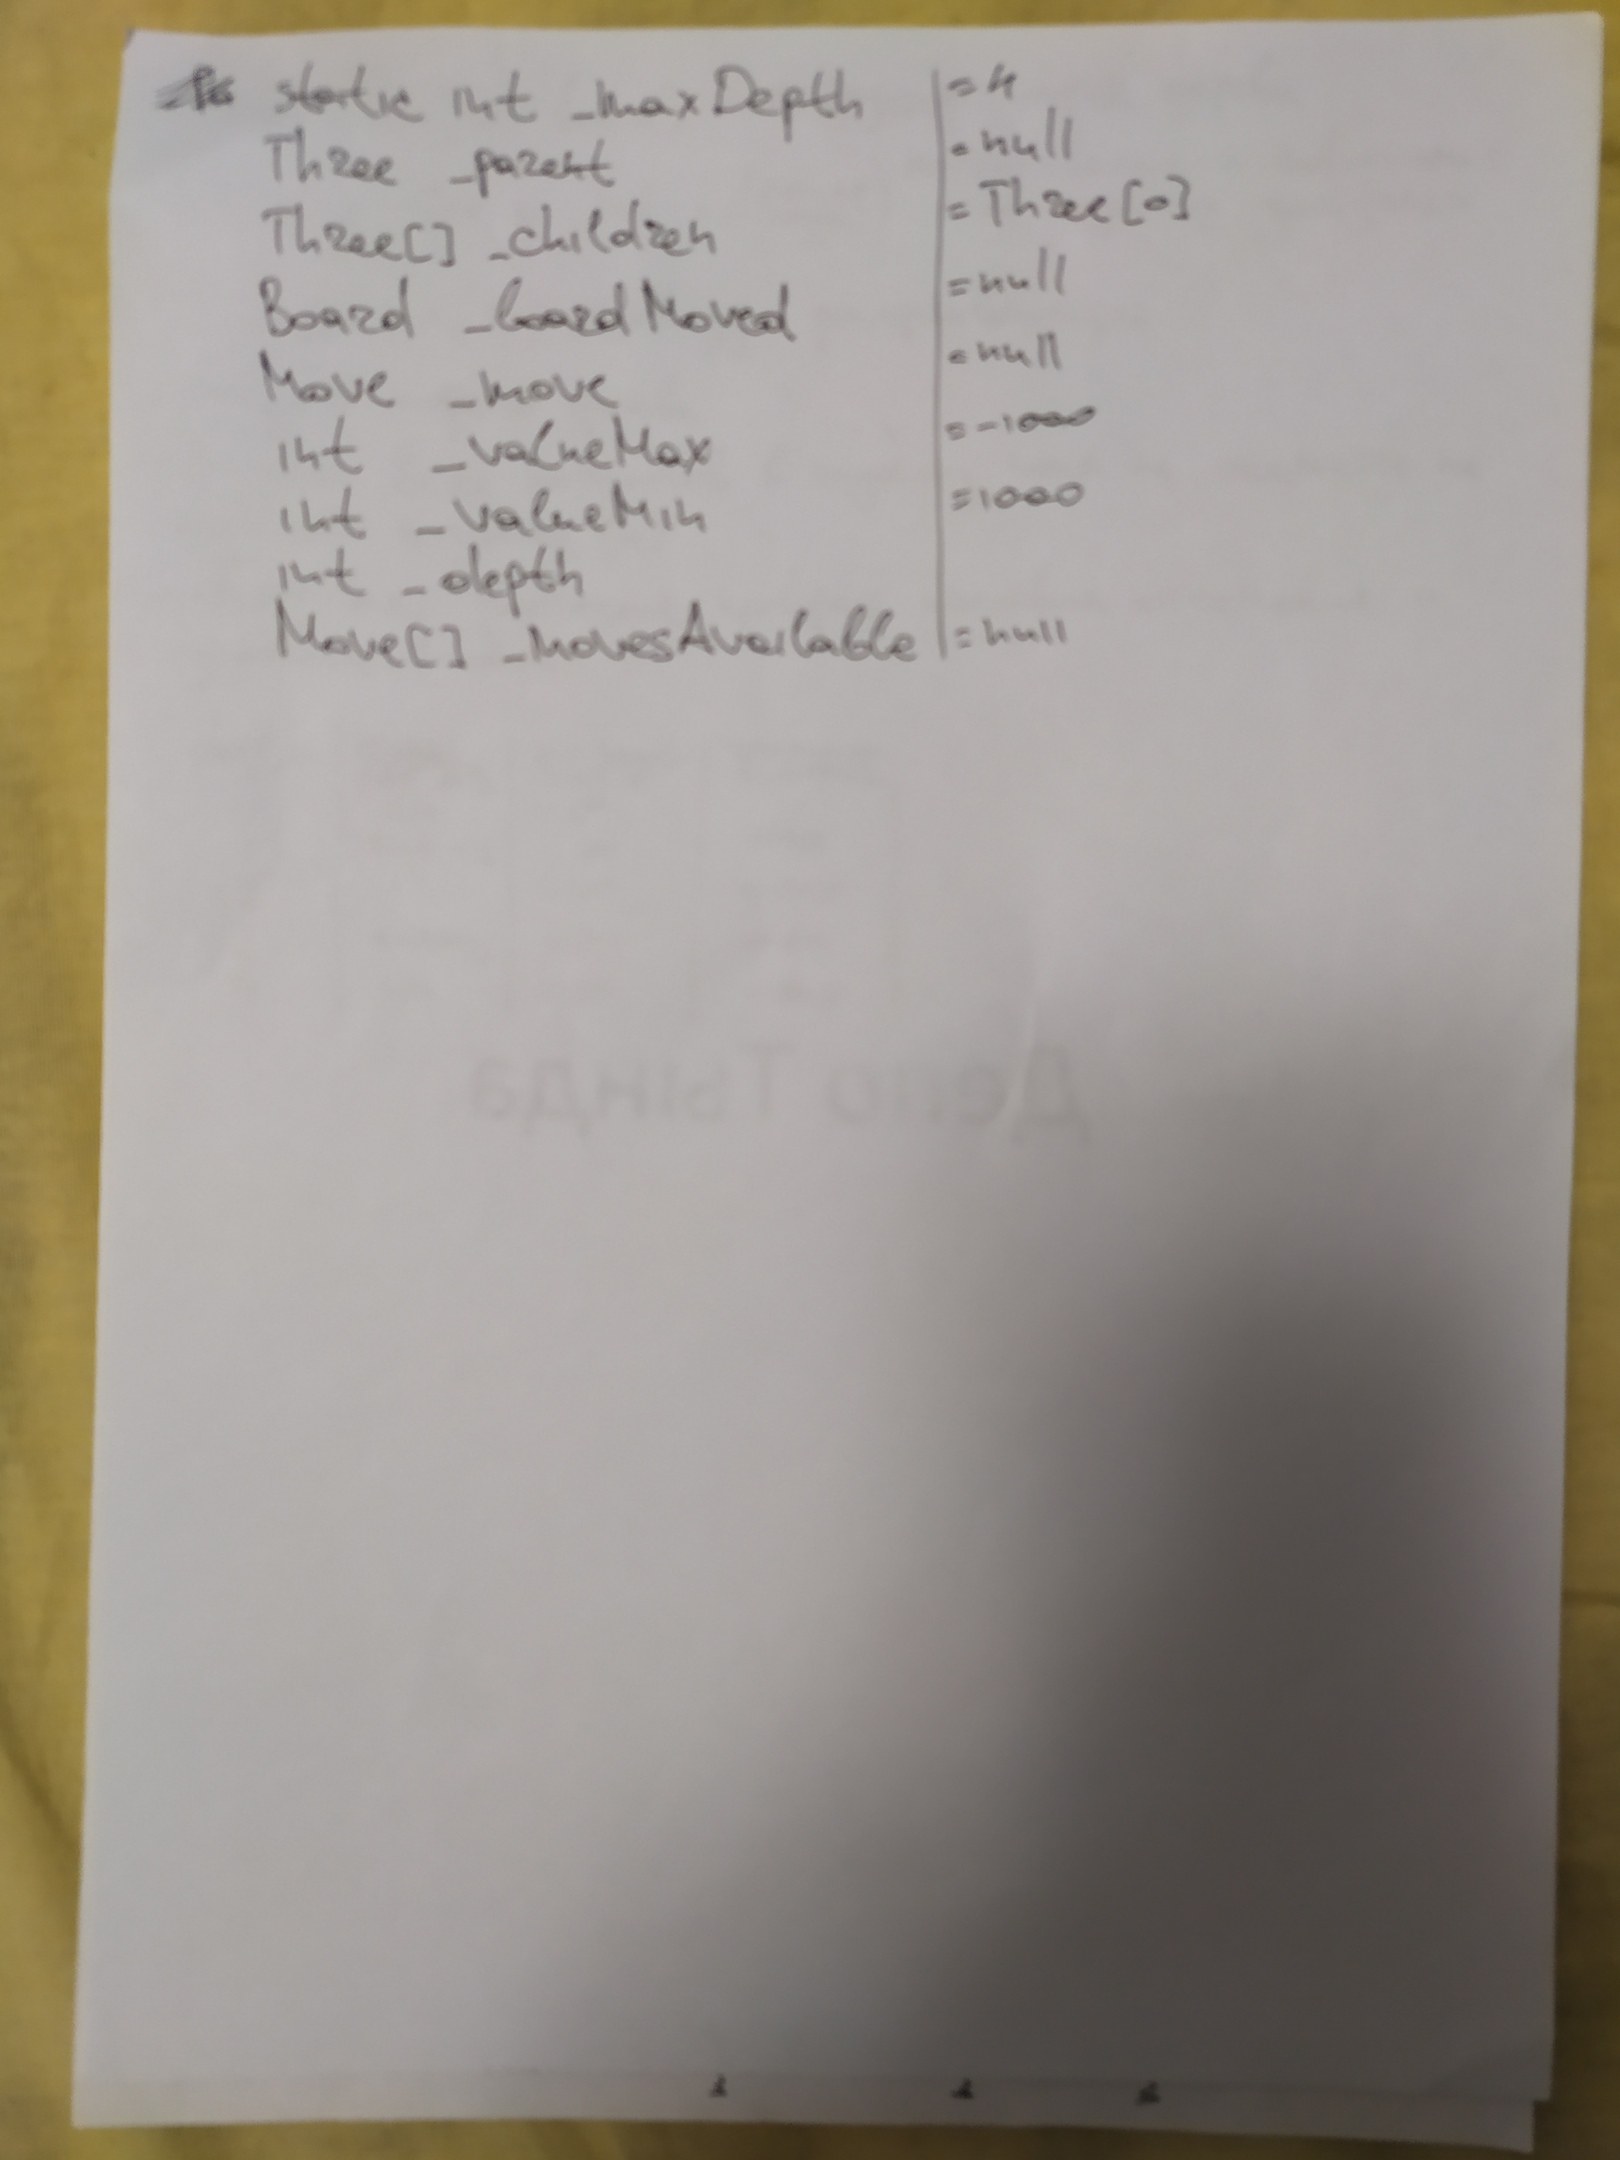 static int _maxDepth = 4
Three _parent = null
Three[] _children = Three[0]
Board _boardMoved = null
Move _move = null
int _valueMax = -1000
int _valueMin = 1000
int _depth
Move[] _movesAvailable = null
Депо Тында